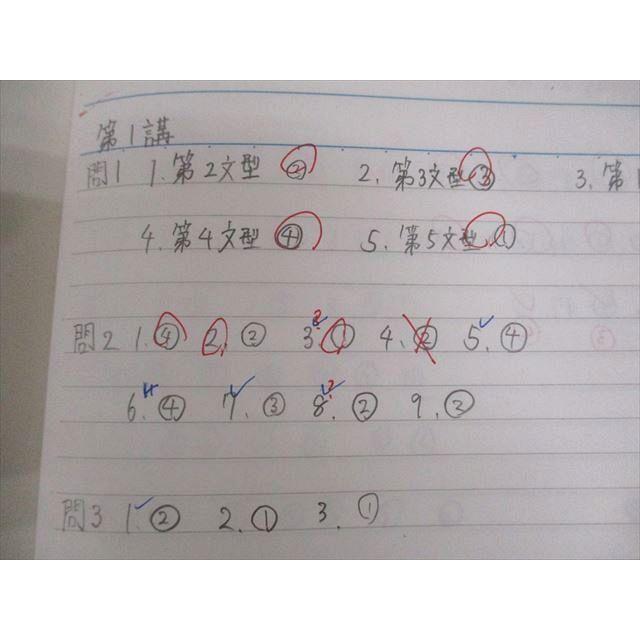 第1講
問1 1. 第2文型 ② 2. 第3文型 ③ 3. 第1
4. 第4文型 ④ 5. 第5文型 ①
問2 1. ④ 2. ② 3. ① 4. ② 5. ④
6. ④ 7. ③ 8. ② 9. ②
問3 1. ② 2. ① 3. ①